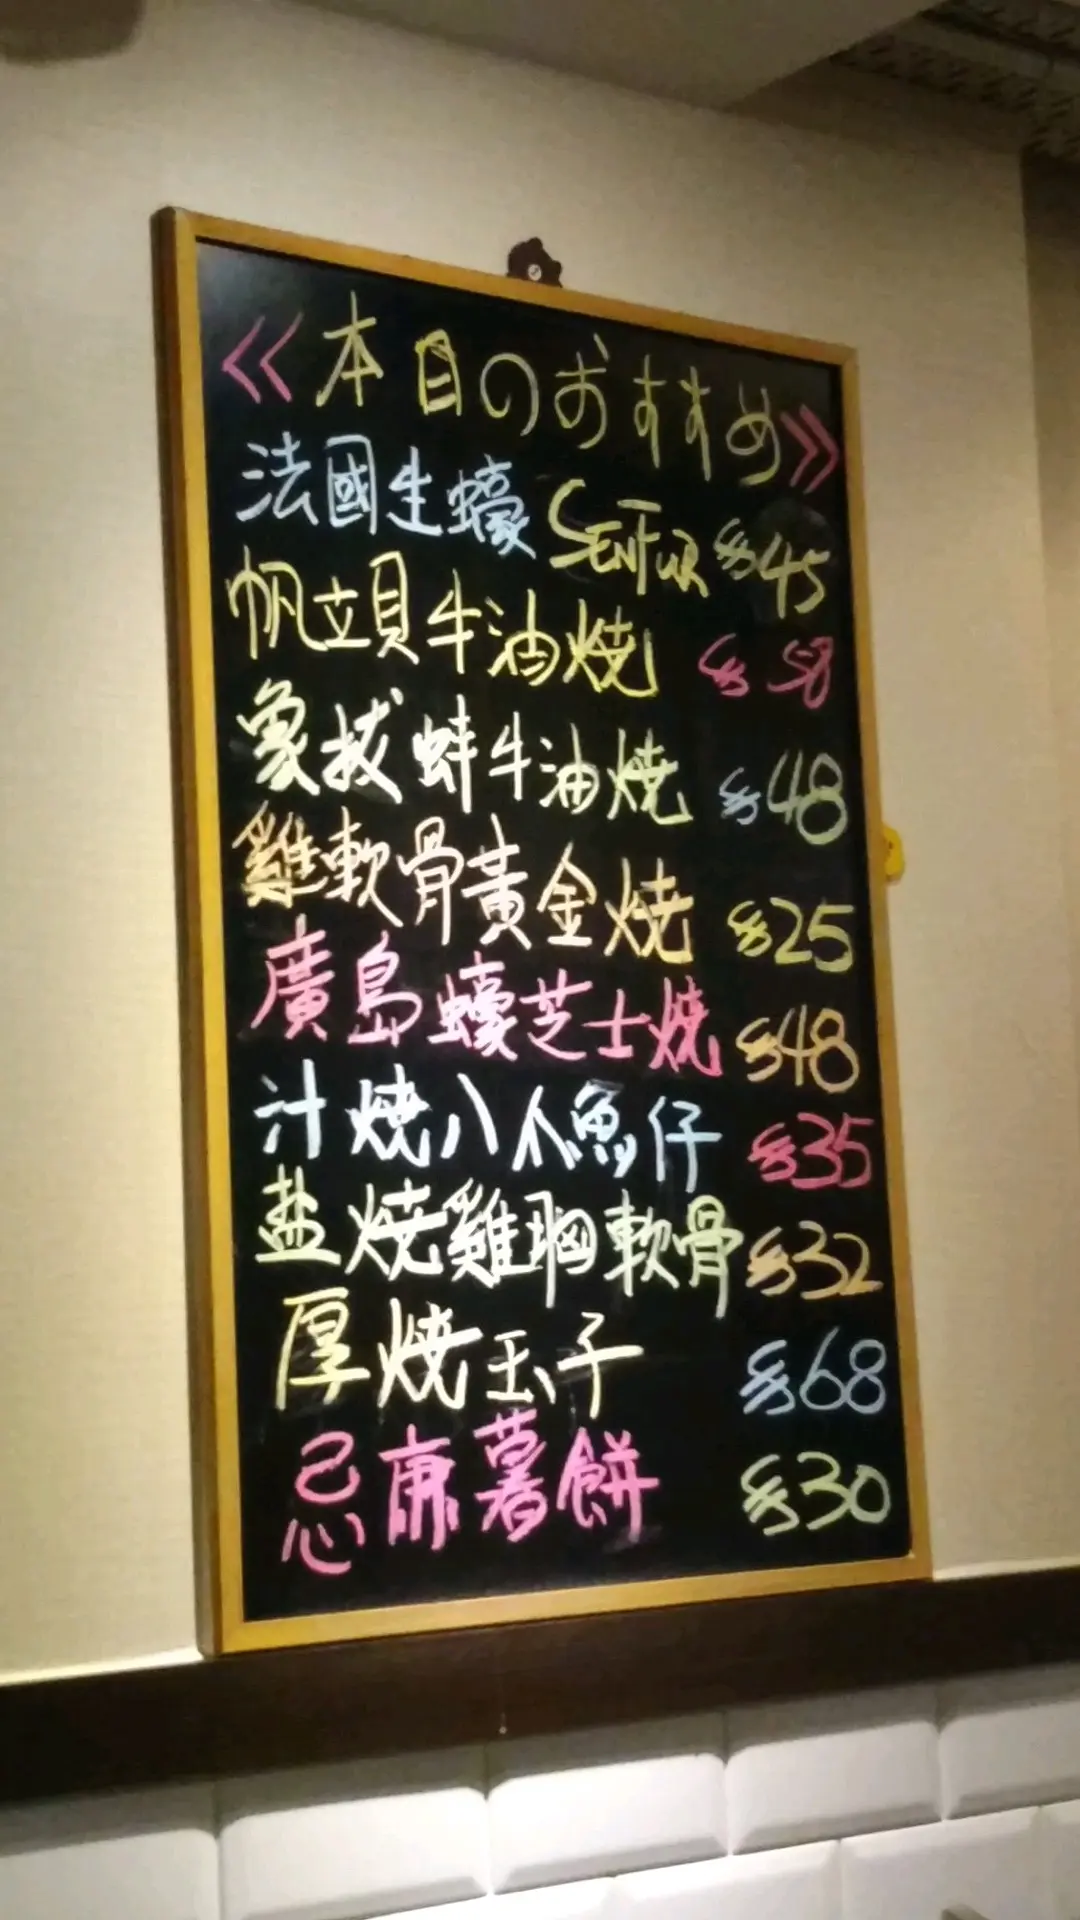 《本日のおすすめ》
法國生蠔 SENTUR $45
帆立貝牛油燒 $58
象拔蚌牛油燒 $48
雞軟骨黃金燒 $25
廣島蠔芝士燒 $48
汁燒八爪魚仔 $35
盐燒雞胸軟骨 $32
厚燒玉子 $68
忌廉薯餅 $30